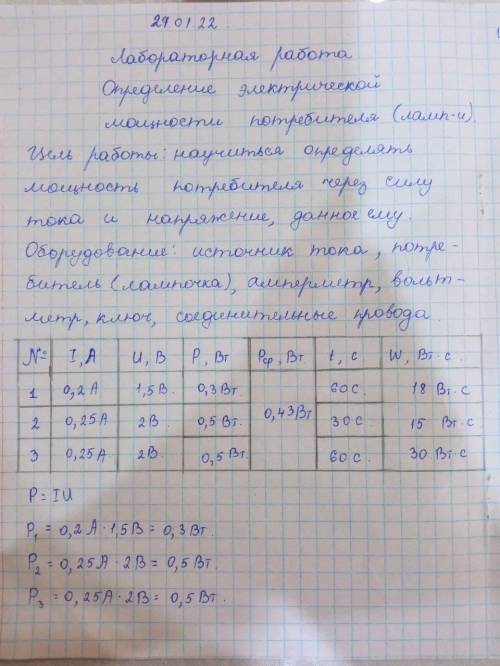 29.01.22
Лабораторная работа
Определение электрической
мощности потребителя (ламп-и).
Цель работы: научиться определять
мощность потребителя через силу
тока и напряжение, данное ему.
Оборудование: источник тока, потре-
битель (лампочка), амперметр, вольт-
метр, ключ, соединительные провода.
№ I, A U, В P, Вт Pср, Вт t, с W, Вт·с
1 0,2 А 1,5 В. 0,3 Вт. 60 с. 18 Вт·с
2 0,25 А 2В. 0,5 Вт. 0,43 Вт 30 с. 15 Вт·с
3 0,25А. 2В. 0,5 Вт. 60 с. 30 Вт·с
P = IU
P₁ = 0,2 А · 1,5 В = 0,3 Вт.
P₂ = 0,25 А · 2В = 0,5 Вт.
P₃ = 0,25 А · 2В = 0,5 Вт.